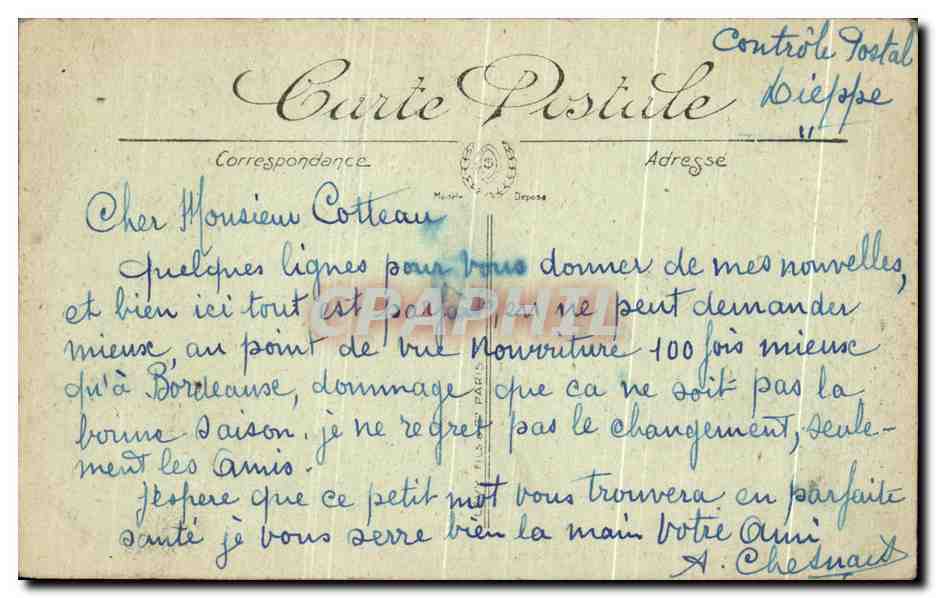 Contrôle Postal
Dieppe
"
Carte Postale
Correspondance
Adresse
Modèle Déposé
Cher Monsieur Cotteau
Quelques lignes pour vous donner de mes nouvelles,
et bien ici tout est parfait, ne peut demander
mieux, au point de vue Nourriture 100 fois mieux
qu'à Bordeaux, dommage que ca ne soit pas la
bonne saison. je ne regret pas le changement, seule-
ment les amis.
J'espere que ce petit mot vous trouvera en parfaite
santé je vous serre bien la main Votre Ami
A. Chesnais
CPAPHIL
FILS PARIS